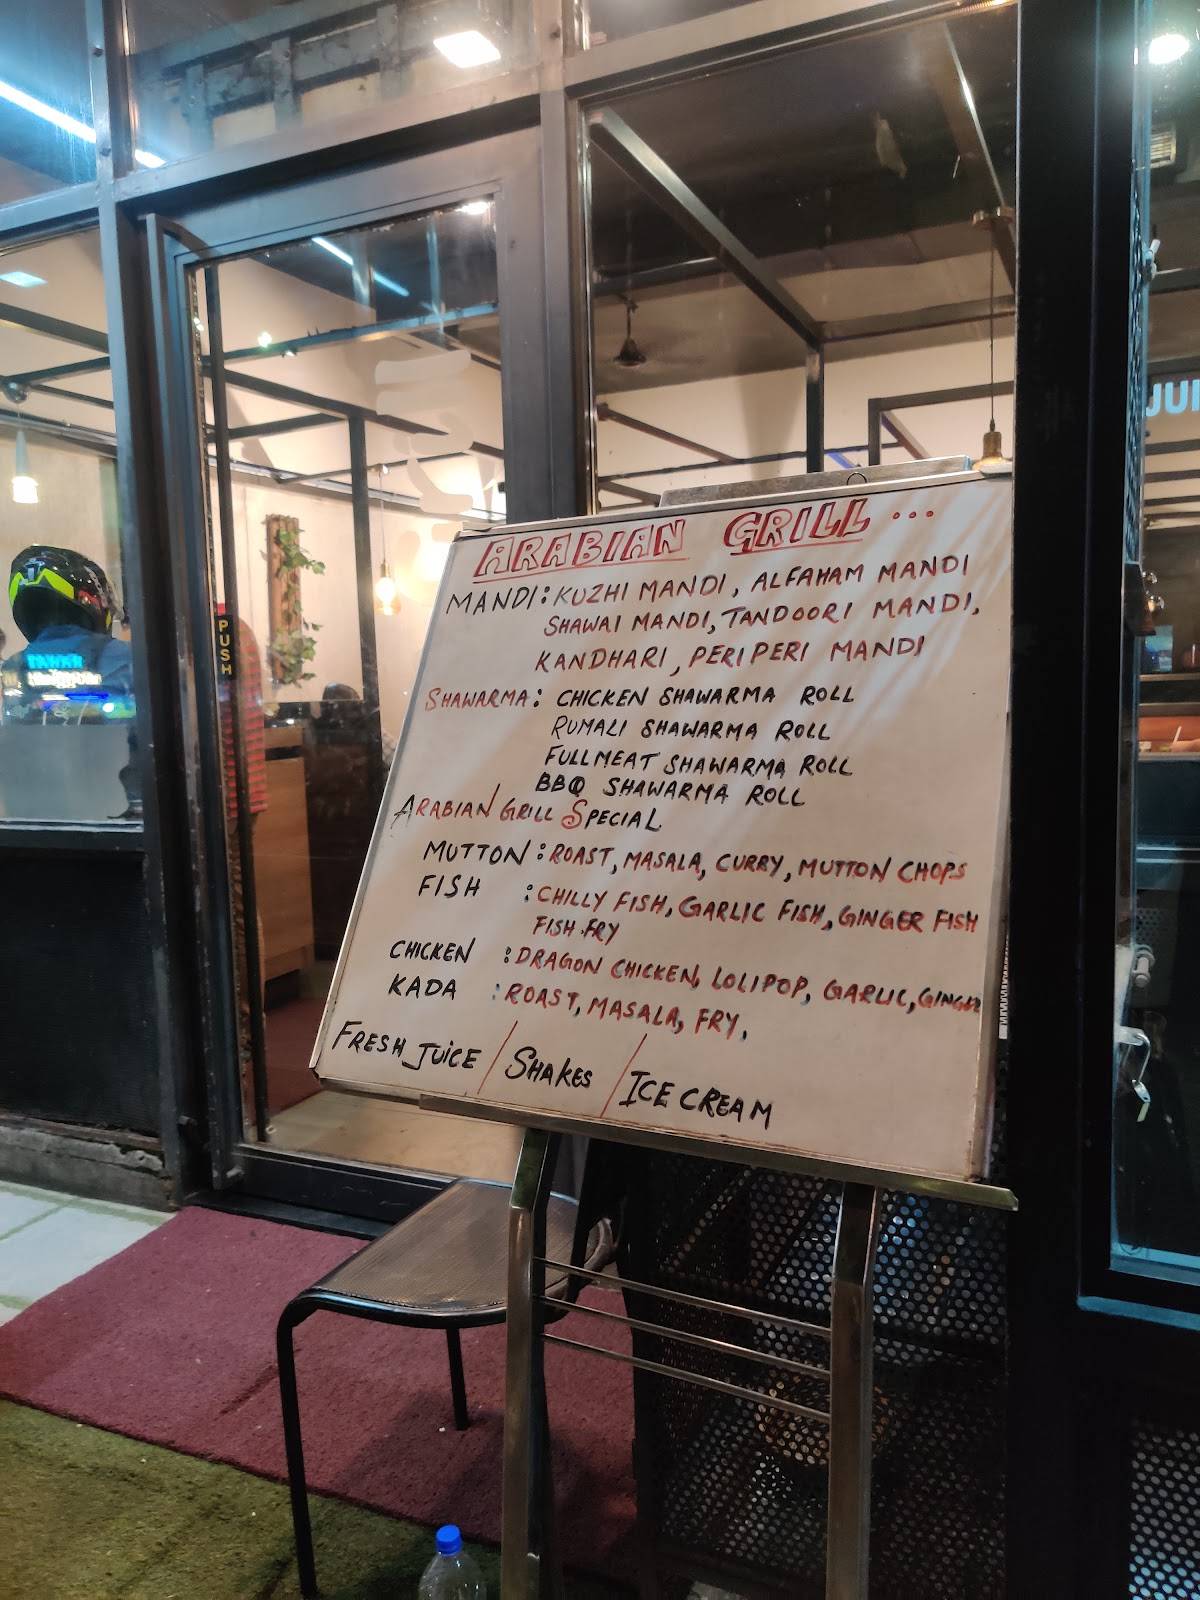 ARABIAN GRILL ...
MANDI: KUZHI MANDI, ALFAHAM MANDI
SHAWAI MANDI, TANDOORI MANDI,
KANDHARI, PERIPERI MANDI
SHAWARMA: CHICKEN SHAWARMA ROLL
RUMALI SHAWARMA ROLL
FULLMEAT SHAWARMA ROLL
BBQ SHAWARMA ROLL
ARABIAN GRILL SPECIAL
MUTTON: ROAST, MASALA, CURRY, MUTTON CHOPS
FISH : CHILLY FISH, GARLIC FISH, GINGER FISH
FISH FRY
CHICKEN : DRAGON CHICKEN, LOLIPOP, GARLIC, GINGER
KADA : ROAST, MASALA, FRY,
FRESH JUICE / SHAKES / ICE CREAM
PUSH
JUI